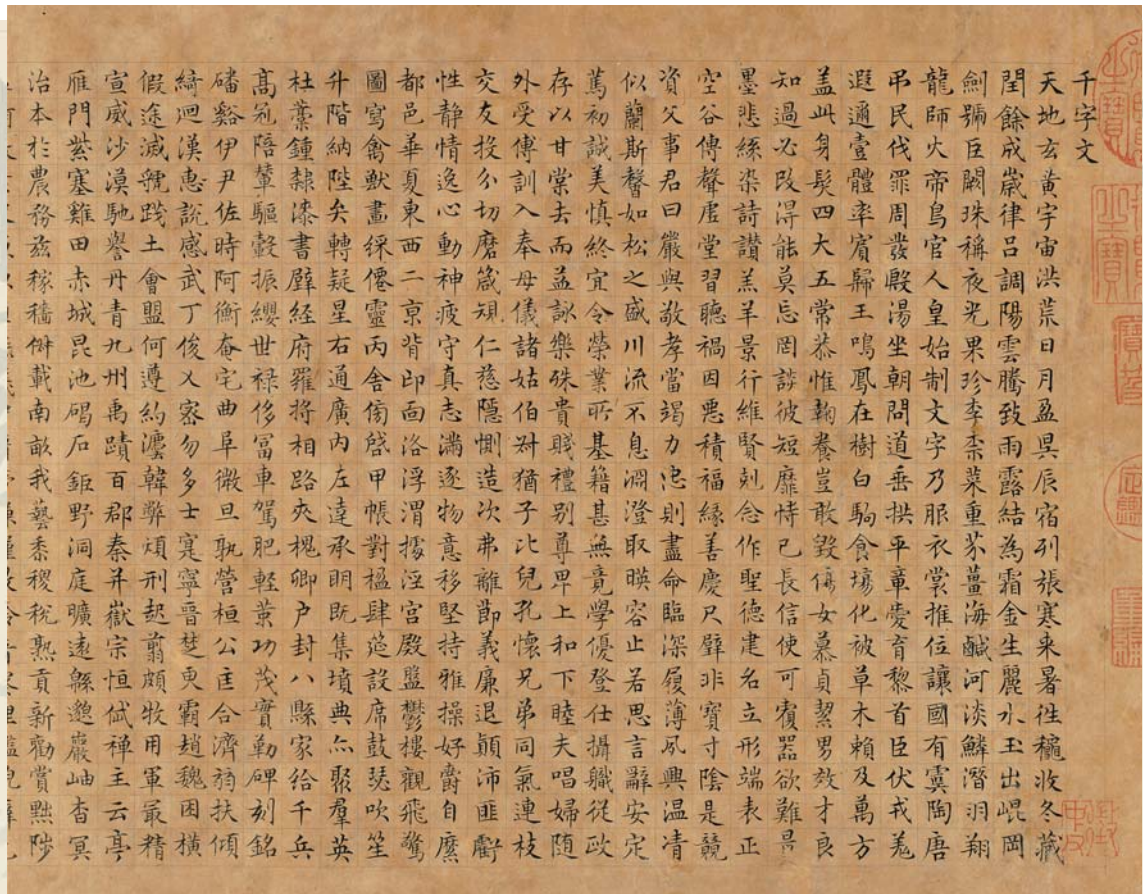 千字文
天地玄黃宇宙洪荒日月盈昃辰宿列張寒来暑往穐收冬藏
閏餘成歲律呂調陽雲騰致雨露結為霜金生麗水玉出崐岡
劍號巨闕珠稱夜光果珍李柰菜重芥薑海鹹河淡鱗潛羽翔
龍師火帝鳥官人皇始制文字乃服衣裳推位讓國有虞陶唐
弔民伐罪周發殷湯坐朝問道垂拱平章愛育黎首臣伏戎羌
遐邇壹體率賓歸王鳴鳳在樹白駒食場化被草木賴及萬方
盖此身髮四大五常恭惟鞠養豈敢毀傷女慕貞潔男效才良
知過必改得能莫忘罔談彼短靡恃己長信使可覆器欲難量
墨悲絲染詩讚羔羊景行維賢剋念作聖德建名立形端表正
空谷傳聲虛堂習聽禍因惡積福緣善慶尺璧非寶寸陰是競
資父事君曰嚴與敬孝當竭力忠則盡命臨深履薄夙興温凊
似蘭斯馨如松之盛川流不息淵澄取暎容止若思言辭安定
篤初誠美慎終宜令榮業所基籍甚無竟學優登仕攝職從政
存以甘棠去而益詠樂殊貴賤禮別尊卑上和下睦夫唱婦随
外受傅訓入奉母儀諸姑伯叔猶子比兒孔懷兄弟同氣連枝
交友投分切磨箴規仁慈隱惻造次弗離節義廉退顛沛匪虧
性静情逸心動神疲守真志滿逐物意移堅持雅操好爵自縻
都邑華夏東西二京背邙面洛浮渭據涇宮殿盤鬱樓觀飛驚
圖寫禽獸畫綵僊靈丙舍傍啓甲帳對楹肆筵設席鼓瑟吹笙
升階納陛弁轉疑星右通廣内左達承明既集墳典亦聚羣英
杜藁鍾隸漆書壁経府羅將相路夾槐卿户封八縣家給千兵
高冠陪輦驅轂振纓世禄侈富車駕肥輕策功茂實勒碑刻銘
磻谿伊尹佐時阿衡奄宅曲阜微旦孰營桓公匡合濟弱扶傾
綺迴漢惠說感武丁俊乂密勿多士寔寧晉楚更霸趙魏困橫
假途滅虢踐土會盟何遵約灋韓弊煩刑起翦頗牧用軍最精
宣威沙漠馳譽丹青九州禹蹟百郡秦并嶽宗恒岱禪主云亭
雁門紫塞雞田赤城昆池碣石鉅野洞庭曠遠緜邈巖岫杳冥
治本於農務兹稼穡俶載南畝我藝黍稷稅熟貢新勸賞黜陟